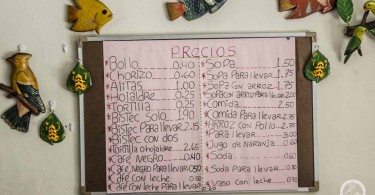 PRECIOS
*Bollo 0.40
*Chorizo 0.60
*Alitas 1.00
*Hojaldre 0.25
*Tortilla 0.25
*Bistec solo 1.90
*Bistec Para llevar 2.15
*Bistec con dos
Tortilla o Hojaldre 2.65
*Café Negro 0.40
*Café Negro Para llevar 0.50
*Café con leche
*Café con leche Para llevar
*Sopa 1.50
*Sopa Para llevar
*Sopa con arroz
*Sopa con arroz Para llevar
*Comida 2.50
*Comida Para llevar
*Arroz con Pollo
Para llevar 3.00
*Jugo de Naranja
*Soda
*Soda Para llevar
*Vaso con leche